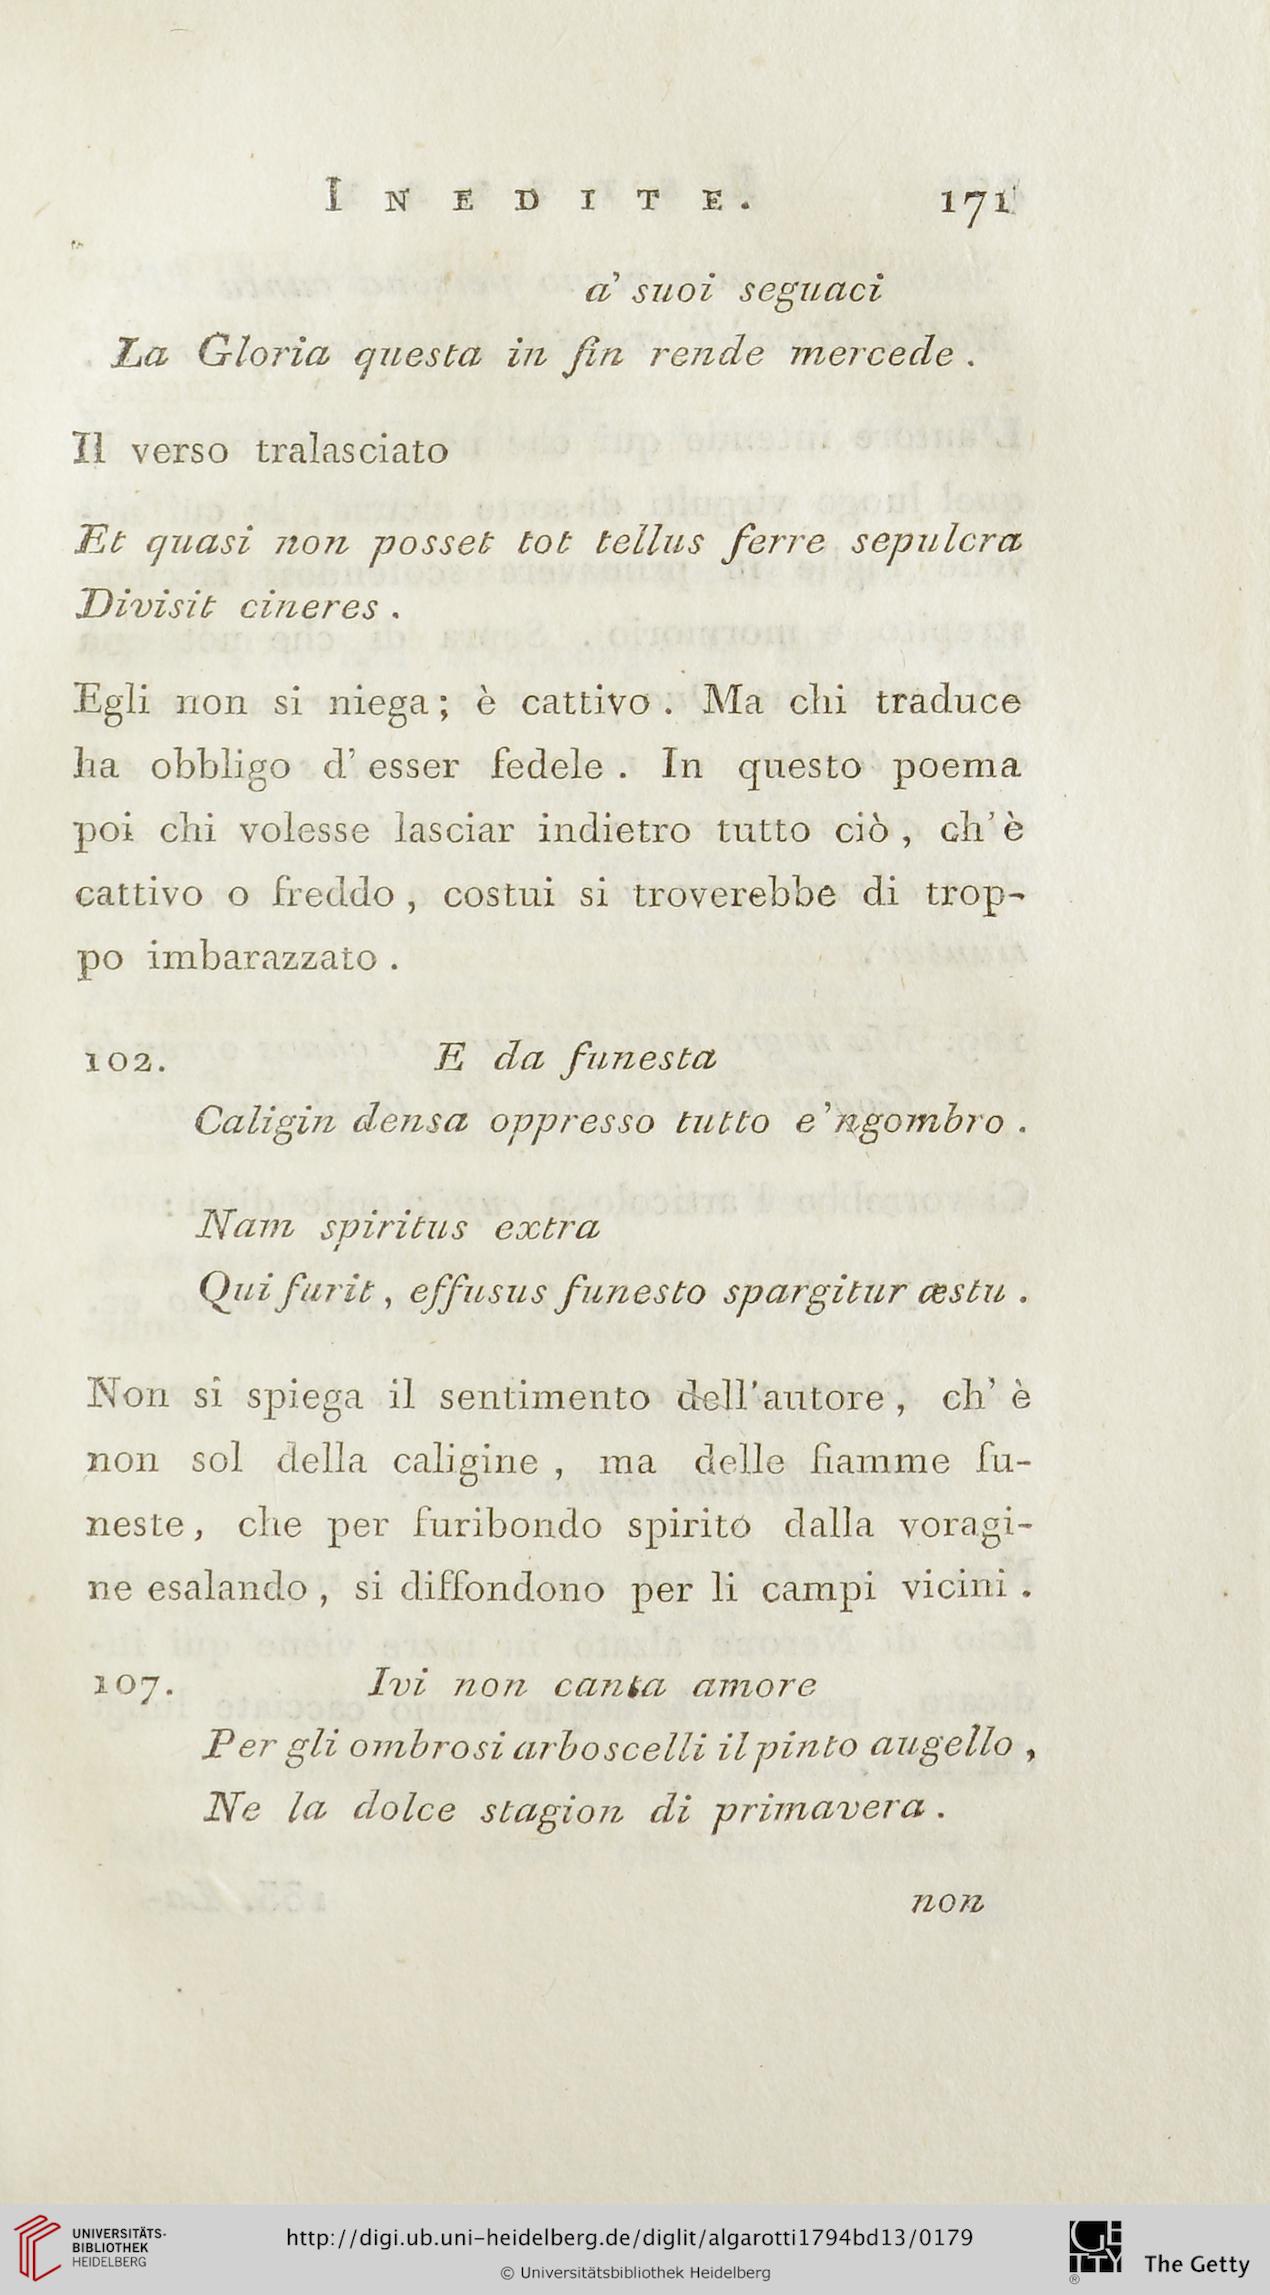 INEDITE. 171
a' suoi seguaci
La Gloria questa in fin rende mercede .
Il verso tralasciato
Et quasi non posset tot tellus ferre sepulcra
Divisit cineres .
Egli non si niega; è cattivo . Ma chi traduce
ha obbligo d' esser fedele . In questo poema
poi chi volesse lasciar indietro tutto ciò , ch' è
cattivo o freddo , costui si troverebbe di trop-
po imbarazzato .
102. E da funesta
Caligin densa oppresso tutto e 'ngombro .
Nam spiritus extra
Qui furit , effusus funesto spargitur æstu .
Non si spiega il sentimento dell'autore , ch' è
non sol della caligine , ma delle fiamme fu-
neste , che per furibondo spirito dalla voragi-
ne esalando , si diffondono per li campi vicini .
107. Ivi non canta amore
Per gli ombrosi arboscelli il pinto augello ,
Ne la dolce stagion di primavera .
non
UNIVERSITÄTS-
BIBLIOTHEK
HEIDELBERG
http://digi.ub.uni-heidelberg.de/diglit/algarotti1794bd13/0179
© Universitätsbibliothek Heidelberg
GETTY
®
The Getty